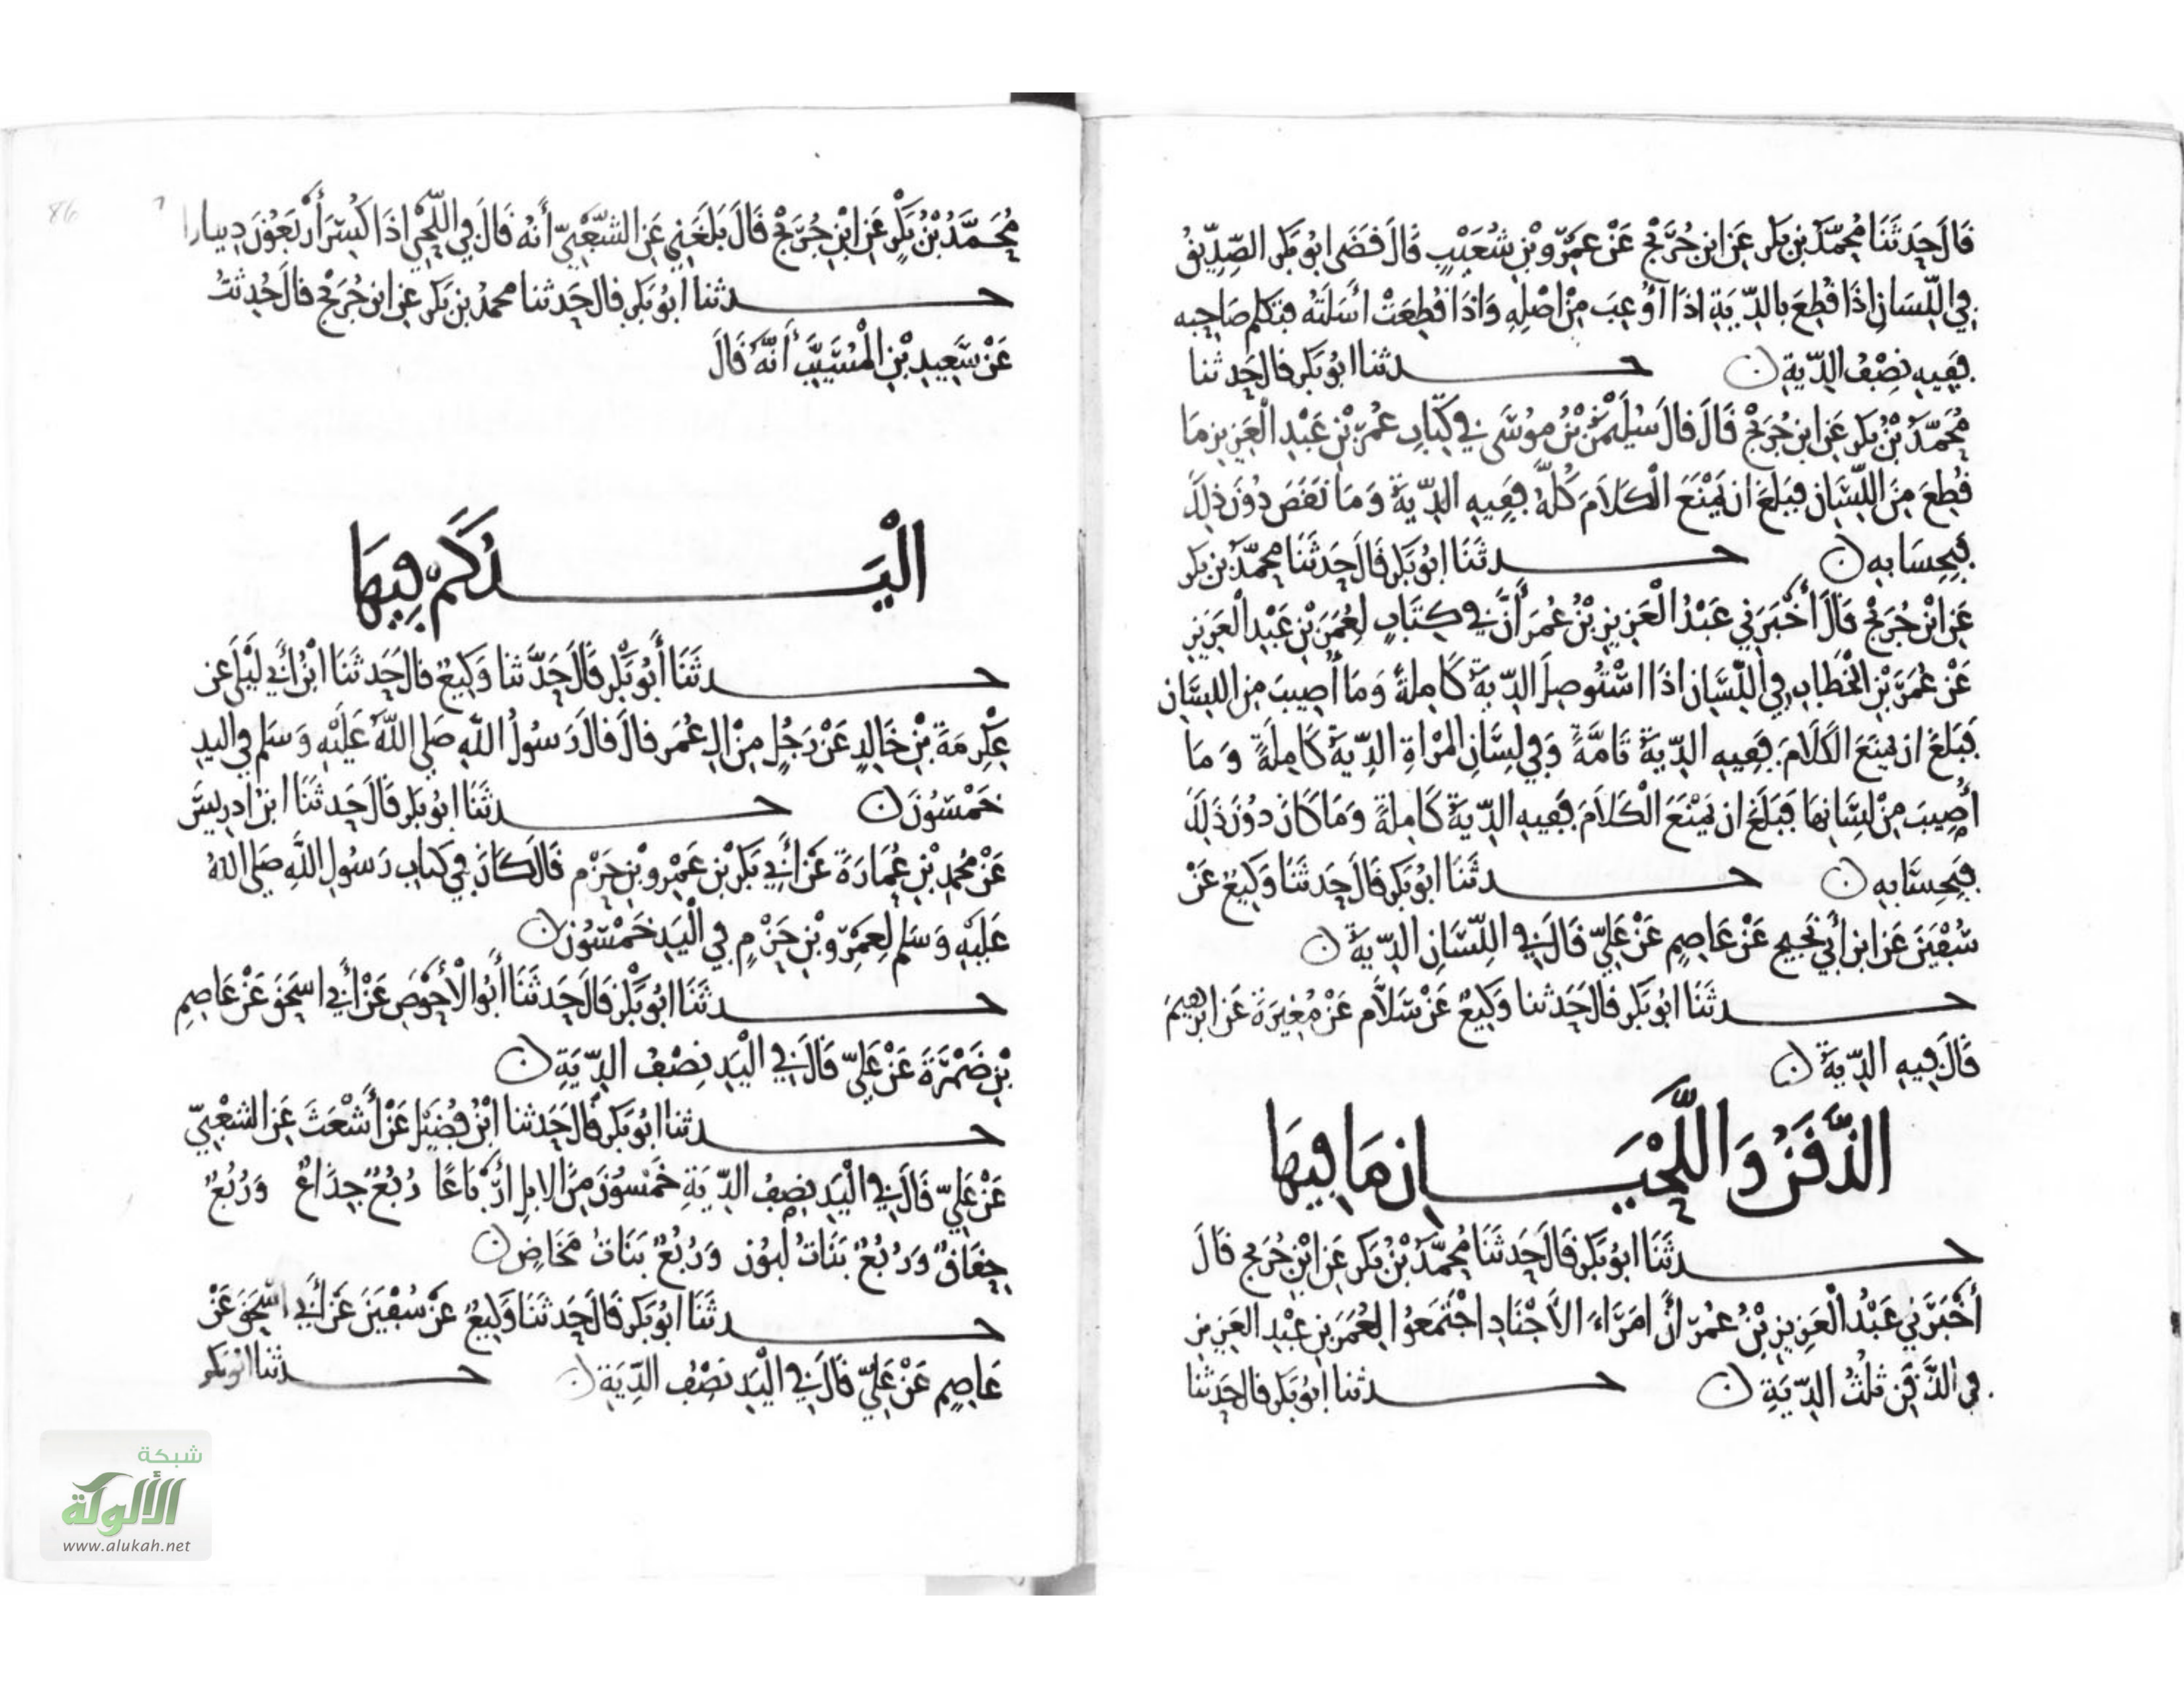 قَالَ حَدَثَنَا مُحَمَّدُ بن بَكر عَن ابن جُرَيْجٍ عَنْ عَمْرِو بْنِ شُعَيْبٍ قَالَ قَضَى ابُو بَكر الصِّدِّيقُ
فِي اللِّسَانِ اذَا قُطِعَ بِالدِّيَةِ اذَا أُوْعِبَ مِنْ اصْلِهِ وَاذَا قُطِعَتْ أَسَلَتُهُ فتكلم صَاحِبه
فَفِيهِ نِصْفُ الدِّيَةِ ن حـــدثنا ابُو بَكر قال حَدثنا
مُحَمَّدُ بْنُ بَكر عَن ابن جُرَيْجٍ قَالَ قال سُلَيْمٰنُ بْنُ مُوسَى فِي كِتَابِ عُمَرَ بْنِ عَبْدِ الْعَزِيزِ مَا
قُطِعَ مِنَ اللِّسَانِ فَبَلَغَ ان يَمْنَعَ الْكَلَامَ كُلَّهُ فَفِيهِ الدِّيَةُ وَمَا نَقَصَ دُونَ ذلِكَ
فَبِحِسَابِهِ ن حـــدثَنَا ابُو بَكر قَالَ حَدثَنَا مُحمَّدُ بن بَكر
عَن ابْن جُرَيْجٍ قَالَ أَخْبَرَنِي عَبْدُ الْعَزِيزِ بْنُ عُمَرَ أَنَّ فِي كِتَابٍ لِعُمَرَ بْنِ عَبْدِ الْعَزِيزِ
عَنْ عُمَرَ بْنِ الْخَطَابِ فِي اللِّسَانِ اذَا اسْتُوصِلَ الدِّيَةُ كَامِلةً وَمَا أُصِيبَ مِن اللِسَان
فَبَلَغَ ان يَمنَعَ الكَلَامَ فَفِيهِ الدِّيَةُ تَامَّةً وَفِي لِسَانِ المَرْاةِ الدِّيَةُ كَامِلَةً وَمَا
أُصِيبَ مِنْ لِسَانِهَا فَبَلَغَ ان يَمْنَعَ الْكَلَامَ فَفِيهِ الدِّيَةُ كَامِلةً وَمَا كَانَ دُونَ ذَلِكَ
فَبِحِسَابِهِ ن حـــدثَنَا ابُو بَكر قَالَ حَدثَنَا وَكِيعٌ عَنْ
سُفْيٰنَ عَن ابن أَبِي نَجِيحٍ عَنْ عَاصِمٍ عَنْ عَلِيٍّ قَالَ فِي اللِّسَانِ الدِّيَةُ ن
حـــدثَنَا ابُو بَكر قال حَدثنا وَكِيعٌ عَنْ سَلَّام عَنْ مُغِيرَةَ عَن ابرهِيمَ
قَالَ فِيهِ الدِّيَةُ ن
الذَّقَنُ وَاللَّحْيَـــانِ مَا فِيهَا
حـــدثَنَا ابُو بَكر قال حَدثَنَا مُحَمَّدُ بْنُ بَكر عَن ابْنِ جُرَيجٍ قَالَ
أَخْبَرَنِي عَبْدُ الْعَزِيزِ بْنُ عُمَرَ أَنَّ امَرَاءَ الأَجْنَادِ اجْتَمَعُوا لِعُمَرَ بن عَبْدِ العَزِيزِ
فِي الذَّقَنِ ثلُثُ الدِّيَةِ ن حـــدثنا ابُو بَكر قال حَدثنا
مُحَمَّدُ بْنُ بَكْرٍ عَنِ ابْنِ جُرَيْجٍ قَالَ بَلَغَنِي عَنِ الشَّعْبِيِّ أَنَّهُ قَالَ فِي اللَّحْيِ اذَا كُسِرَ أَرْبَعُونَ دِينارا
حـــدثنا ابُو بَكر قال حَدثنا محمدُ بن بَكر عن ابن جُرَيْجٍ قال حُدِثتُ
عَنْ سَعِيدِ بْنِ الْمُسَيَّبِ أَنَّهُ قَالَ
الْيَـــدُ كَمْ فِيهَا
حـــدثَنَا أَبُو بَكْرٍ قَالَ حَدَّثنا وَكِيعٌ قال حَدثَنَا ابْنُ أَبِي لَيْلَى عَن
عِكْرِمَةَ بْنِ خَالِدٍ عَنْ رَجُلٍ مِنْ الِ عُمَر قال قالَ رَسُولُ اللَّهِ صَلى اللَّهُ عَلَيْهِ وَسَلم فِي اليدِ
خَمْسُونَ ن حـــدثَنَا ابُو بَكر قَالَ حَدثَنَا ابن ادرِيسَ
عَنْ مُحمدِ بْنِ عُمَارَةَ عَنْ أَبِي بَكْرِ بْنِ عَمْرِو بْنِ حَزْمٍ قَالَ كَانَ فِي كِتاب رَسُولِ اللَّهِ صَلى اللهُ
عَلَيْهِ وَسَلم لِعَمْرِو بْنِ حَزْمٍ فِي الْيَدِ خَمْسُونَ ن
حـــدثَنَا ابُو بَكْرٍ قَالَ حَدثَنَا أَبُو الْأَحْوَصِ عَنْ أَبِي اسحٰقَ عَنْ عَاصِمِ
بْنِ ضَمْرَةَ عَنْ عَلِيٍّ قَالَ فِي الْيَدِ نِصْفُ الدِّيَةِ ن
حـــدثنا ابُو بَكر قَالَ حَدثنا ابْنُ فُضَيْلٍ عَنْ أَشْعَثَ عَن الشعْبِيِّ
عَنْ عَلِيٍّ قَالَ فِي الْيَدِ نِصْفُ الدِّيَةِ خَمْسُونَ مِنَ الابِلِ ارْبَاعًا رُبُعٌ جِذَاعٌ وَرُبُعٌ
حِقَاقٌ وَرُبُعٌ بَنَاتُ لَبُونٍ وَرُبُعٌ بَنَاتُ مَخَاضٍ ن
حـــدثَنَا ابُو بَكر قَالَ حَدثَنَا وَكِيعٌ عَنْ سُفْيٰنَ عَنْ أَبِي اسْحٰقَ عَنْ
عَاصِمٍ عَنْ عَلِيٍّ قَالَ فِي الْيَدِ نِصْفُ الدِّيَةِ ن حـــدثنا ابُو بَكر
86
شبكة
الألوكة
www.alukah.net